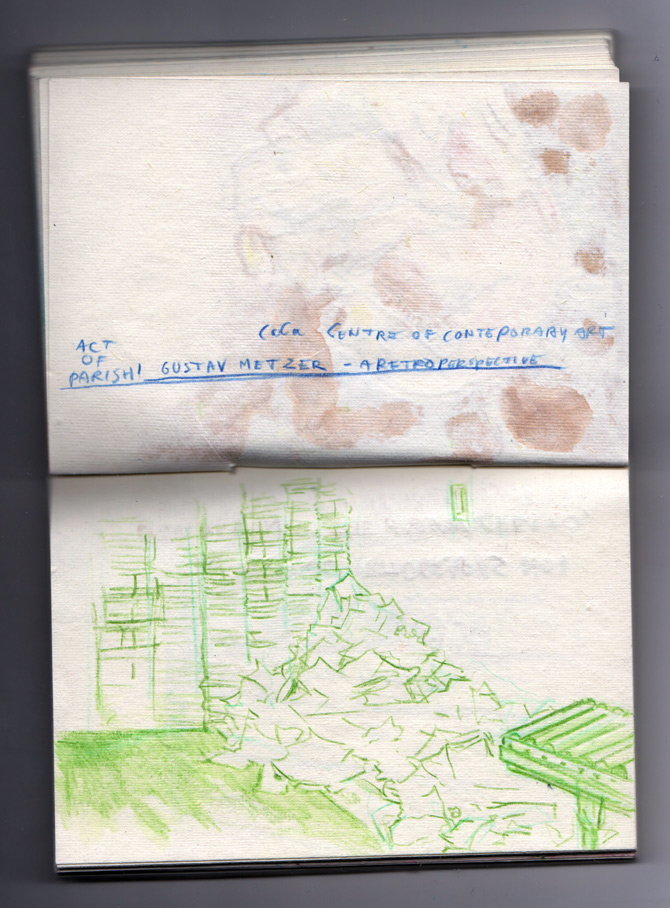 CoCa CENTRE OF CONTEPORARY ART
ACT
OF
PARISH! GUSTAV METZER - A RETROPERSPECTIVE